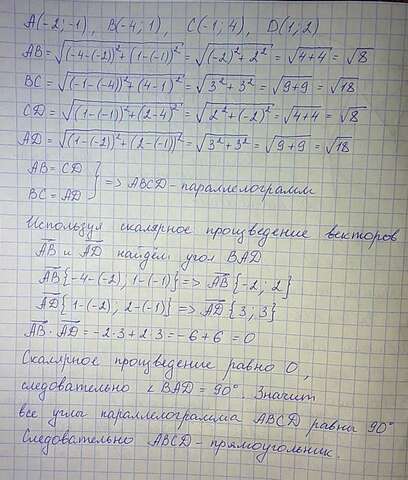 A(-2;-1), B(-4;1), C(-1;4), D(1;2)
AB=√((-4-(-2))²+(1-(-1))²=√((-2)²+2²=√(4+4=√8
BC=√((-1-(-4))²+(4-1)²=√(3²+3²=√(9+9=√18
CD=√((1-(-1))²+(2-4)²=√(2²+(-2)²=√(4+4=√8
AD=√((1-(-2))²+(2-(-1))²=√(3²+3²=√(9+9=√18
AB=CD
BC=AD } => ABCD-параллелограмм
Используя скалярное произведение векторов
AB и AD найдём угол BAD
AB{-4-(-2), 1-(-1)} => AB{-2; 2}
AD{1-(-2), 2-(-1)} => AD{3; 3}
AB·AD=-2·3+2·3=-6+6=0
Скалярное произведение равно 0,
следовательно ∠BAD=90°. Значит
все углы параллелограмма ABCD равны 90°
Следовательно ABCD-прямоугольник.